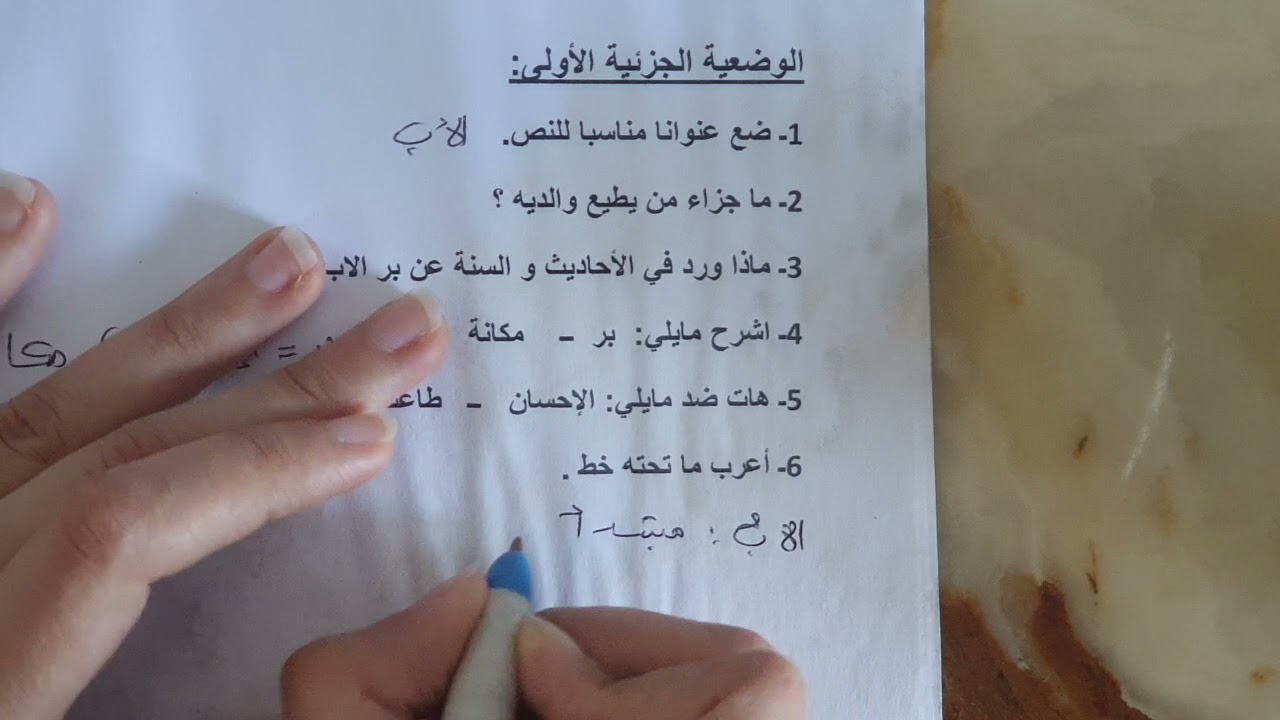 الوضعية الجزئية الأولى:
1- ضع عنوانا مناسبا للنص. الأب
2- ما جزاء من يطيع والديه ؟
3- ماذا ورد في الأحاديث و السنة عن بر الاب
4- اشرح مايلي: بر - مكانة = مكا
5- هات ضد مايلي: الإحسان - طاعـ
6- أعرب ما تحته خط .
الأب : مبتدأ